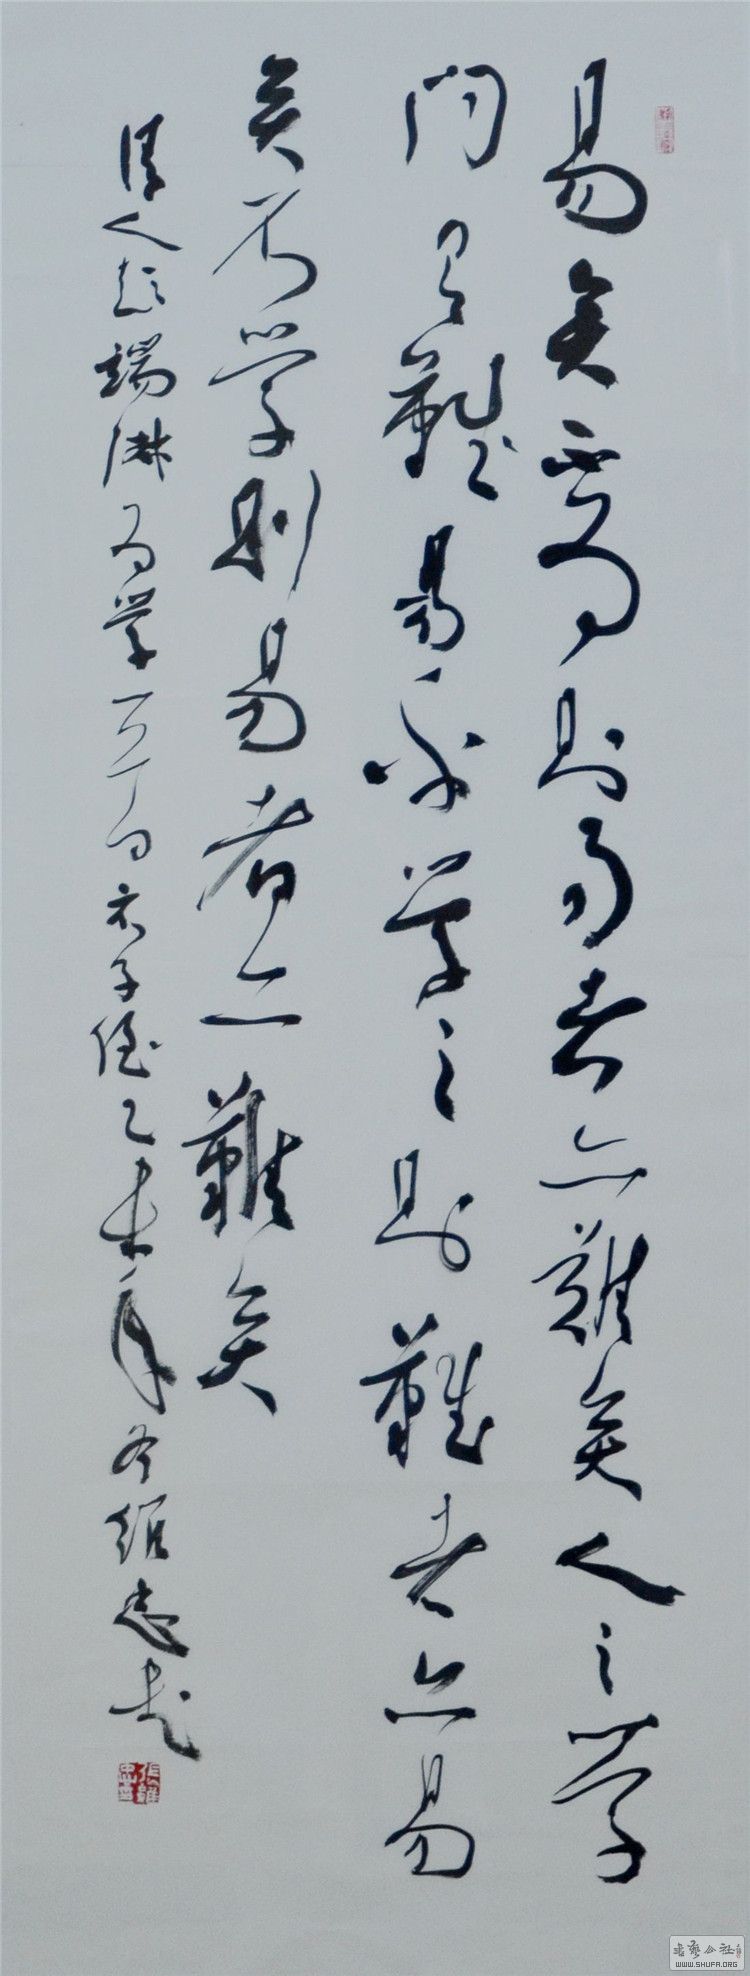 易矣不為則易者亦難矣人之學
問有難易乎學之則難者亦易
矣不學則易者亦難矣
清人彭端淑為學一首示子侄乙未年冬
書藝公社
WWW.SHUFA.ORG